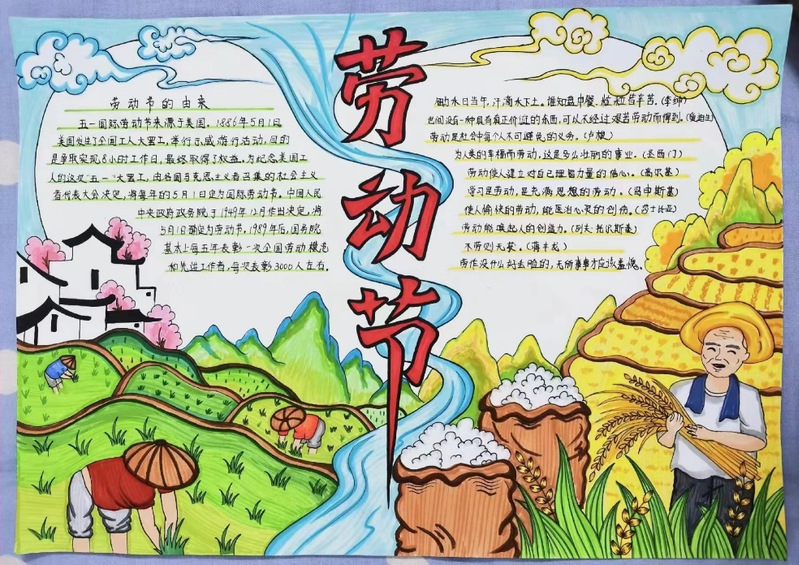 劳动节
劳动节的由来
五一国际劳动节来源于美国。1886年5月1日
美国发生了全国工人大罢工,举行示威游行活动,目的
是争取实现8小时工作日,最终取得了权益。为纪念美国工
人的这次"五一"大罢工,由各国马克思主义者召集的社会主义
者代表大会决定,将每年的5月1日定为国际劳动节。中国人民
中央政府政务院于1949年12月作出决定,将
5月1日确定为劳动节。1989年后,国务院
基本上每五年表彰一次全国劳动模范
和先进工作者,每次表彰3000人左右。
锄禾日当午,汗滴禾下土。谁知盘中餐,粒粒皆辛苦。(李绅)
世间没有一种具有真正价值的东西,可以不经过艰苦劳动而得到。(爱迪生)
劳动是社会中每个人不可避免的义务。(卢梭)
为人类的幸福而劳动,这是多么壮丽的事业。(圣西门)
劳动使人建立对自己理智力量的信心。(高尔基)
学习是劳动,是充满思想的劳动。(乌申斯基)
使人愉快的劳动,能医治心灵的创伤。(莎士比亚)
劳动能唤起人的创造力。(列夫·托尔斯泰)
不劳则无获。(蒋丰龙)
劳作没什么好丢脸的,无所事事才应该羞愧。